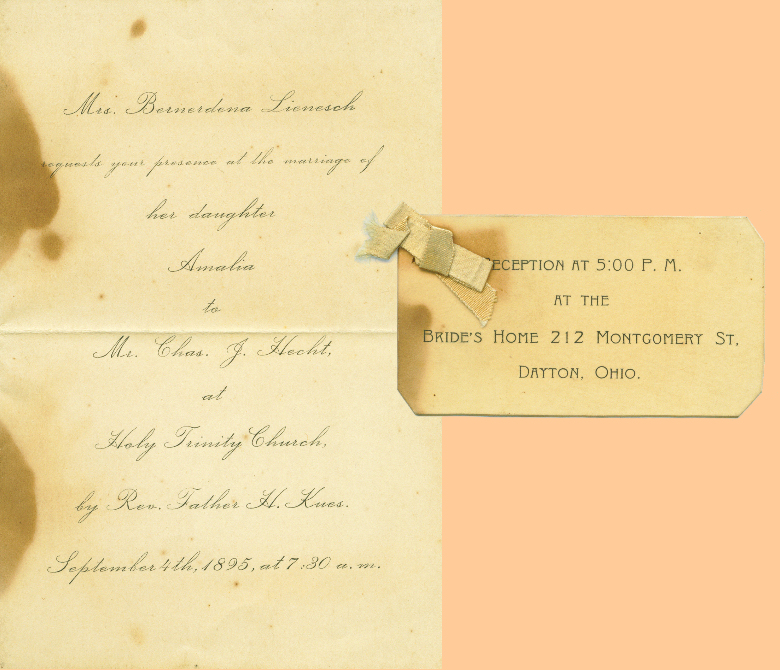 Mrs. Bernerdena Lienesch
requests your presence at the marriage of
her daughter
Amalia
to
Mr. Chas. J. Hecht,
at
Holy Trinity Church,
by Rev. Father H. Kues.
September 4th, 1895, at 7:30 a.m.
ECEPTION AT 5:00 P. M.
AT THE
BRIDE'S HOME 212 MONTGOMERY ST,
DAYTON, OHIO.